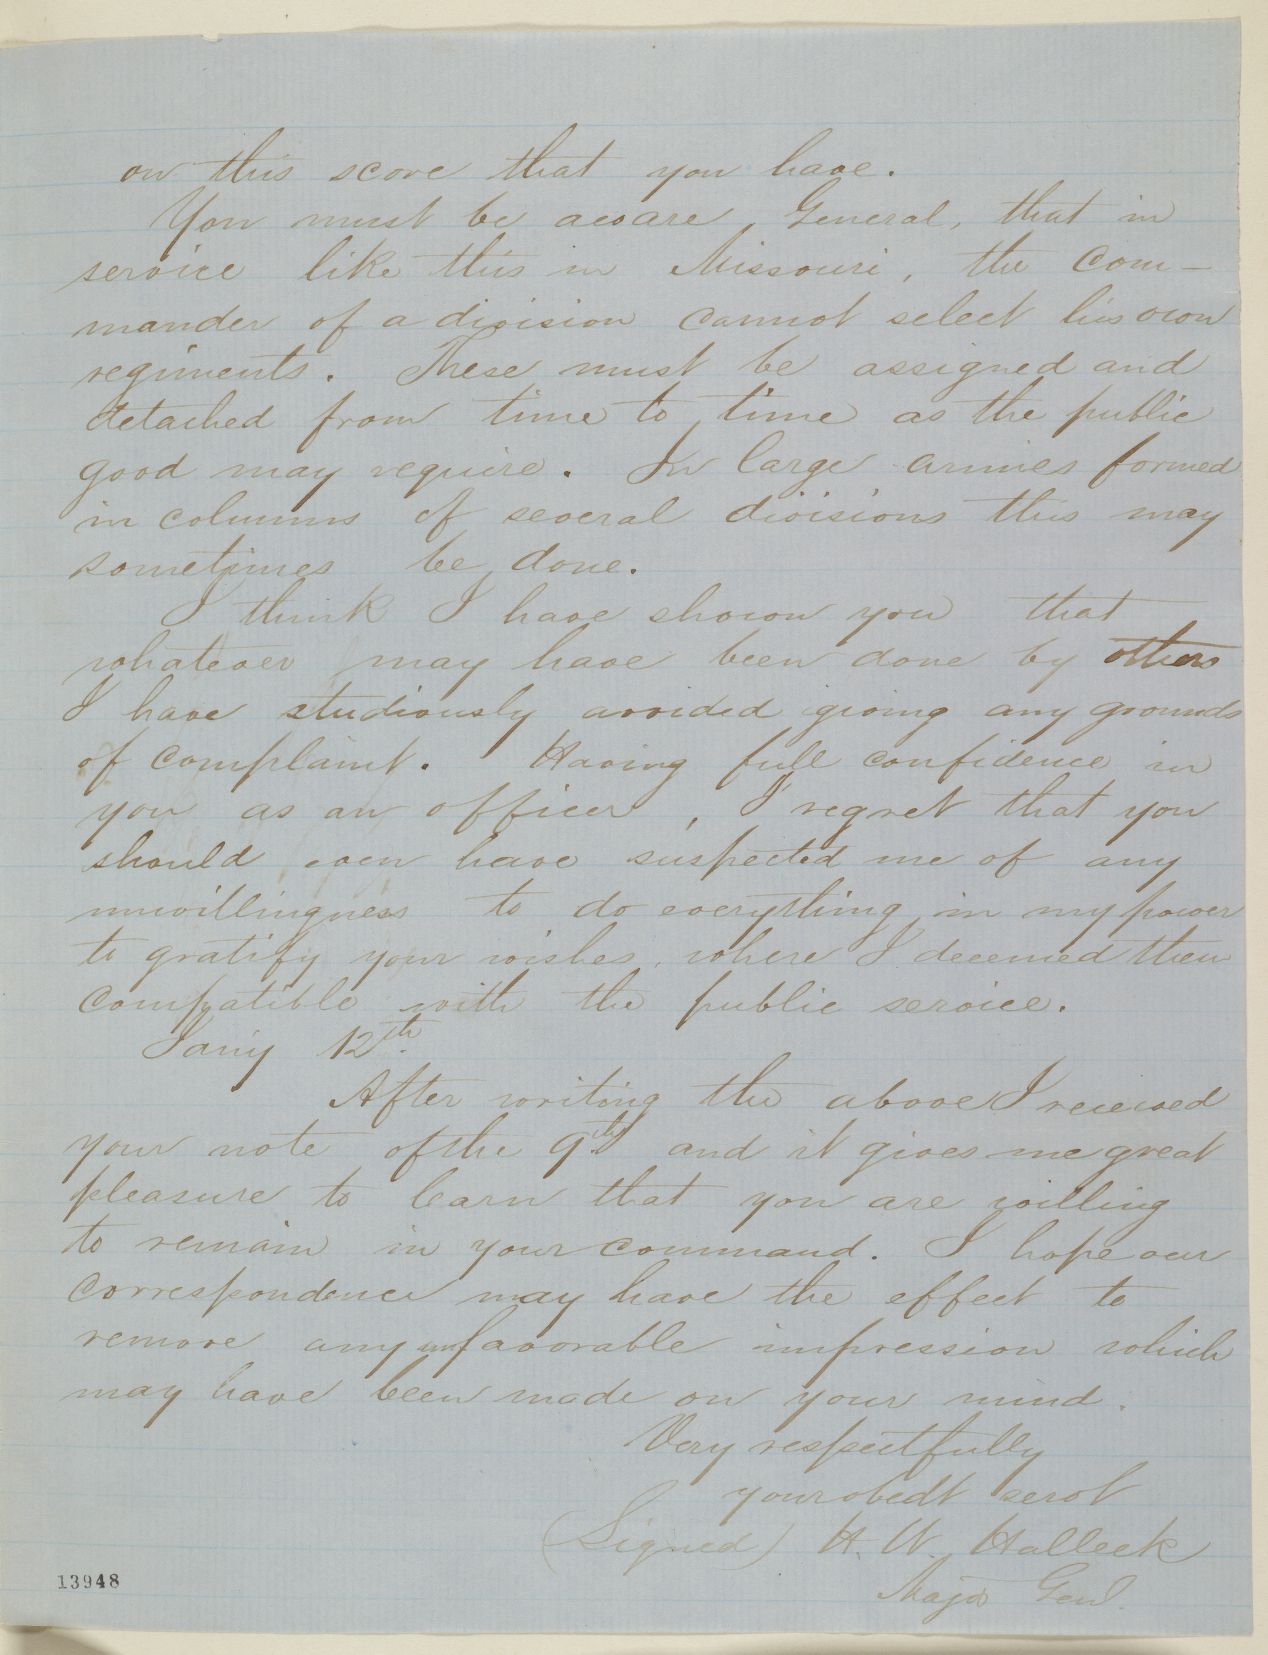 on this score that you have.
You must be aware, General, that in
service like this in Missouri, the com-
mander of a division cannot select his own
regiments. These must be assigned and
detached from time to time as the public
good may require. In large armies formed
in columns of several divisions this may
sometimes be done.
I think I have shown you that
whatever may have been done by others
I have studiously avoided giving any grounds
of complaint. Having full confidence in
you as an officer, I regret that you
should even have suspected me of any
unwillingness to do everything in my power
to gratify your wishes, where I deemed them
compatible with the public service.
Jany 12th.
After writing the above I received
your note of the 9th and it gives me great
pleasure to learn that you are willing
to remain in your command. I hope our
correspondence may have the effect to
remove any unfavorable impression which
may have been made on your mind.
Very respectfully
your obedt servt
(Signed) H. W. Halleck
Major Genl.
13948